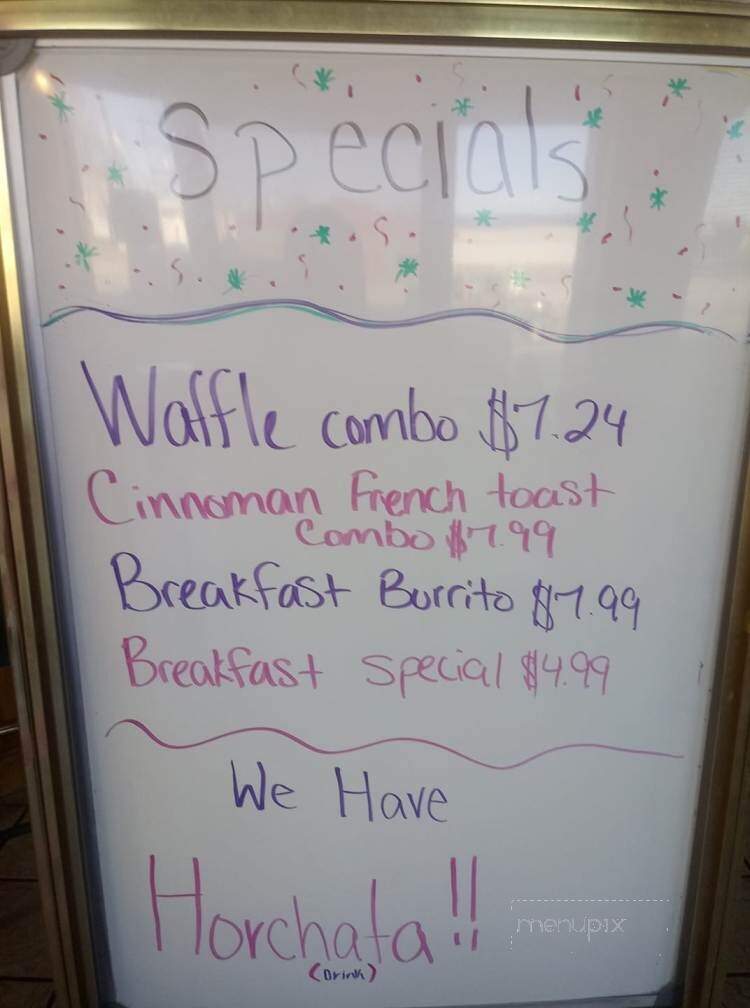 Specials
Waffle combo $7.24
Cinnoman French toast
Combo $7.99
Breakfast Burrito $7.99
Breakfast special $4.99
We Have
Horchata!!
(Drink)
menupix